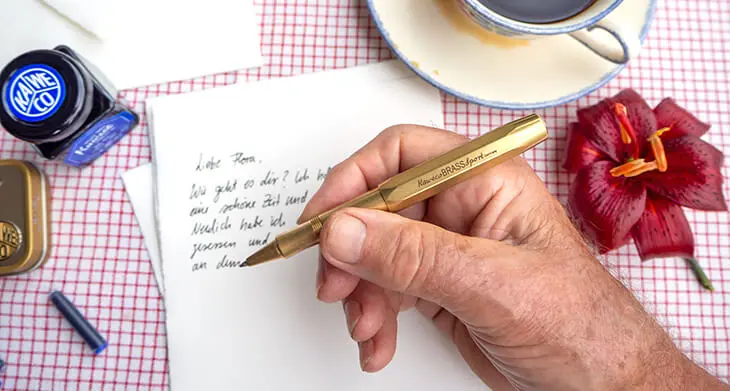 KAWE
CO
Liebe Flora,
Wie geht es dir? Ich
eine schöne Zeit und
Neulich habe ich
gesessen und
an dem
Kaweco BRASS Sport